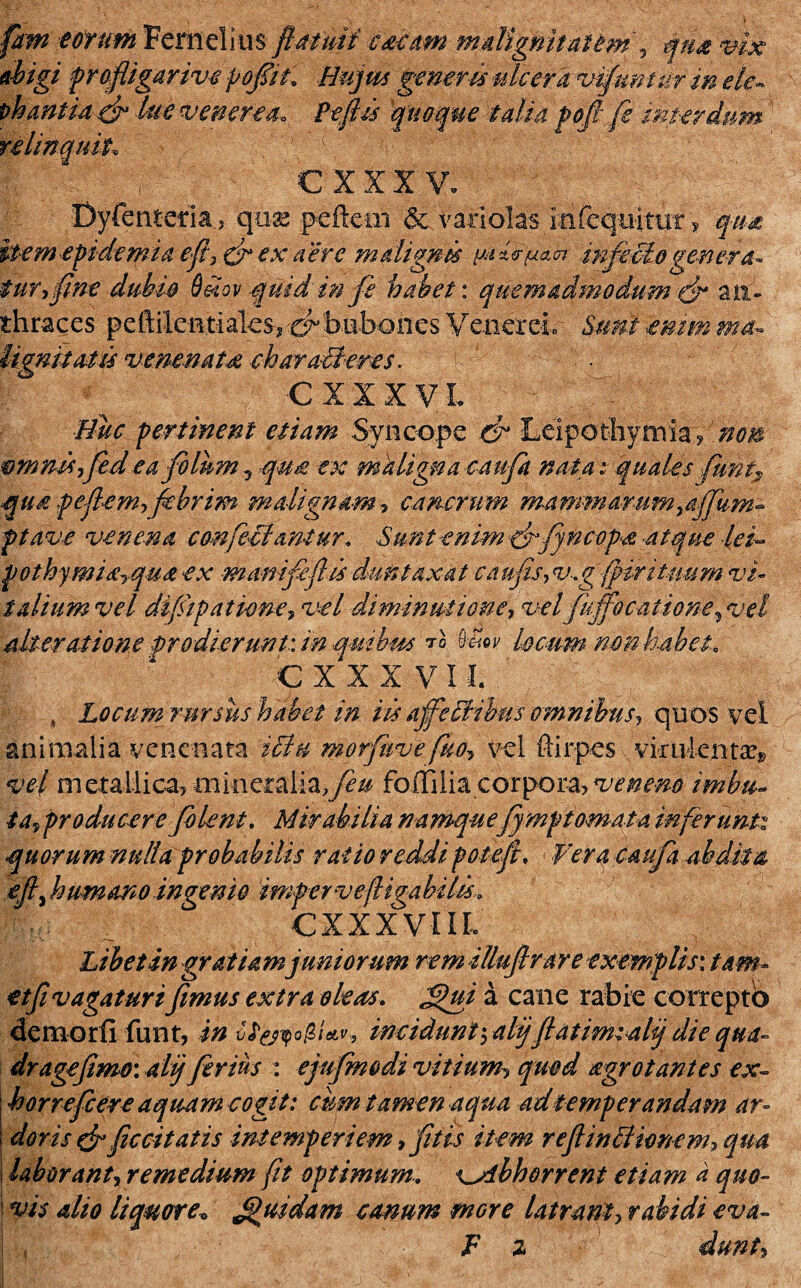 ſam eorum Fernelius ſtatuit cæcam malignitatem, quæ vix
abigi profligarive poſſit. Hujus generis ulcera viſuntur in ele-
phantia & lue venerea. Peſtis quoque talia poſt ſe interdum
relinquit.
CXXXV.
Dyſenteria, quæ peſtem & variolas inſequitur, quæ
item epidemia eſt, & ex aëre malignis μιάσμασι infecto genera-
tur, ſine dubio θεῖον quid in ſe habet: quemadmodum & an-
thraces peſtilentiales, & bubones Venerei. Sunt enim ma-
lignitatis venenatæ characteres.
CXXXVI.
Huc pertinent etiam Syncope & Leipothymia, non
omnis, ſed ea ſolùm, quæ ex maligna cauſa nata: quales ſunt,
quæ peſtem, febrim malignam, cancrum mammarum, aſſum-
ptave venena conſectantur. Sunt enim & ſyncopæ atque lei-
pothymiæ, quæ ex manifeſtis duntaxat cauſis, v.g ſpirituum vi-
talium vel diſſipatione, vel diminutione, vel ſuffocatione, vel
alteratione prodierunt: in quibus τὸ θεῖον locum non habet.
CXXXVII.
Locum rursùs habet in iis affectibus omnibus, quos vel
animalia venenata ictu morſuve ſuo, vel ſtirpes virulentæ,
vel metallica, mineralia, ſeu foſſilia corpora, veneno imbu-
ta, producere ſolent. Mirabilia namque ſymptomata inferunt:
quorum nulla probabilis ratio reddi poteſt. Vera cauſa abdita
eſt, humano ingenio impervestigabilis.
CXXXVIII.
Libet in gratiam juniorum rem illuſtrare exemplis: tam-
etſi vagaturi ſimus extra oleas. Qui à cane rabie correpto
demorſi ſunt, in ὑδροφοβίαν, incidunt; alij ſtatim: alij die qua-
drageſimo: alij ſeriùs : ejuſmodi vitium, quod ægrotantes ex-
horreſcere aquam cogit: cùm tamen aqua ad temperandam ar-
doris & ſiccitatis intemperiem, ſitis item reſtinctionem, qua
laborant, remedium ſit optimum. Abhorrent etiam à quo-
vis alio liquore. Quidam canum more latrant, rabidi eva-
F 2 dunt,